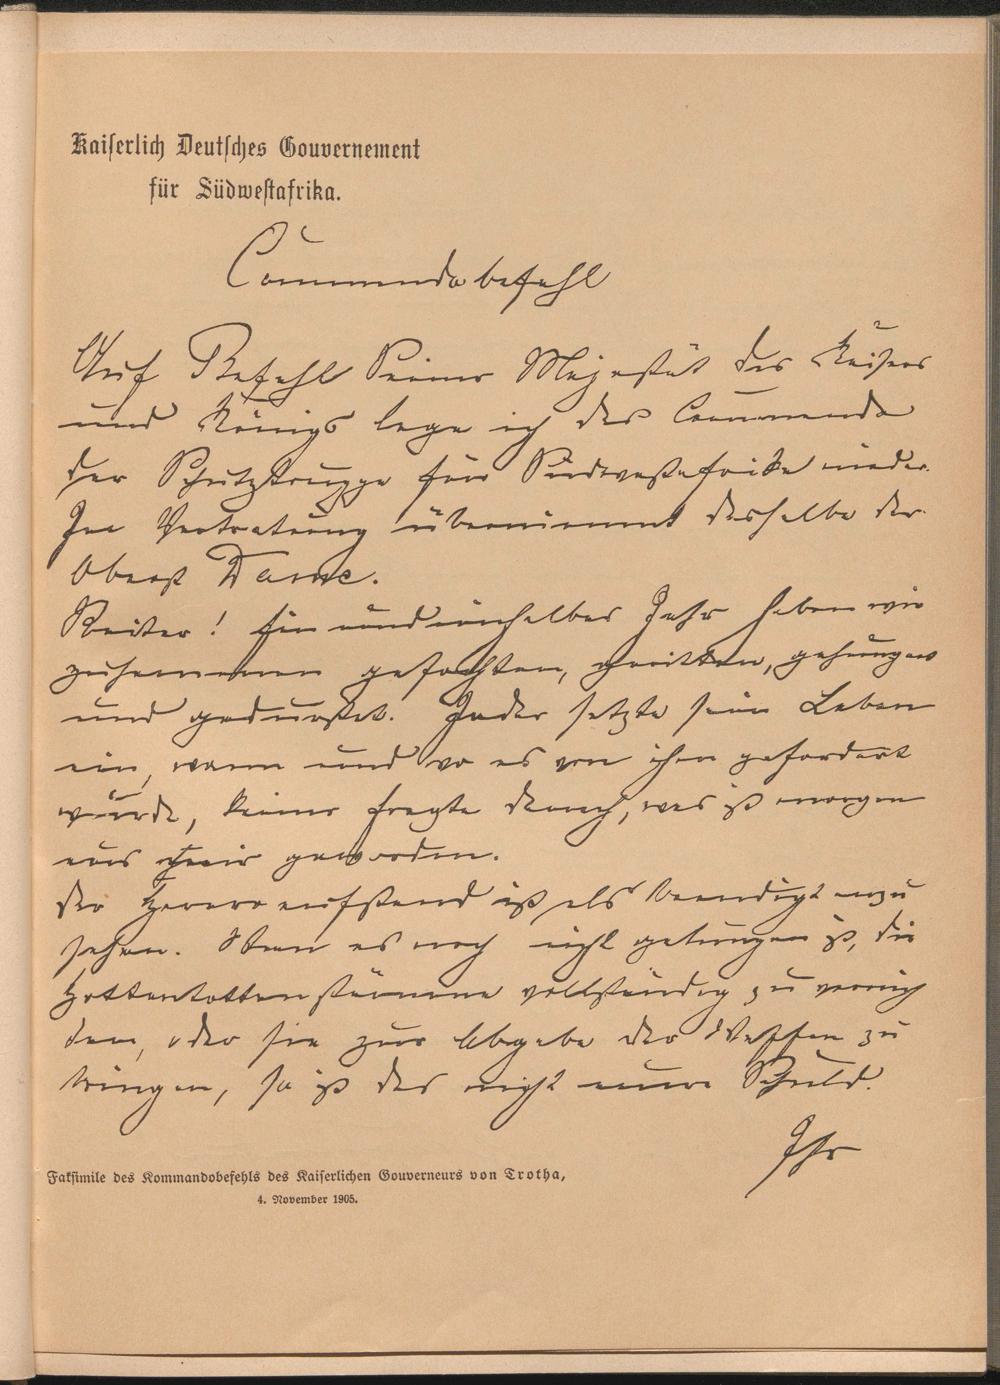 Kaiserlich Deutsches Gouvernement
für Südwestafrika.
Commandobefehl
Auf Befehl Seiner Majestät des Kaisers
und Königs lege ich das Commando
der Schutztruppe für Südwestafrika nieder.
In Vertretung übernimmt dasselbe der
Oberst Dame.
Reiter! Ein und einhalbes Jahr haben wir
zusammen gefochten, geritten, gehungert
und gedurstet. Jeder setzte sein Leben
ein, wann und wo es von ihm gefordert
wurde, keiner fragte danach, was ist morgen
aus geworden.
Der Hereroaufstand ist als beendigt anzu
sehen. Wenn es noch nicht gelungen ist, die
Hottentottenstämme vollständig zu vernich
ten, oder sie zur Abgabe der Waffen zu
bringen, so ist das nicht eure Schuld.
Ihr
Faksimile des Kommandobefehls des Kaiserlichen Gouverneurs von Trotha,
4. November 1905.